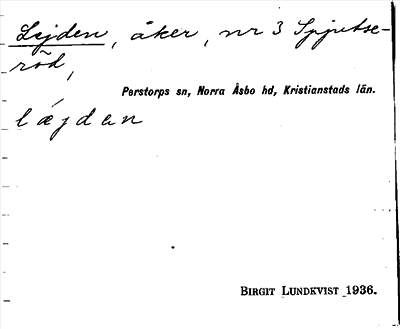 Lejden, åker, nr 3 Spjutse-
röd,
Perstorps sn, Norra Åsbo hd, Kristianstads län.
lǽjdan
BIRGIT LUNDKVIST 1936.